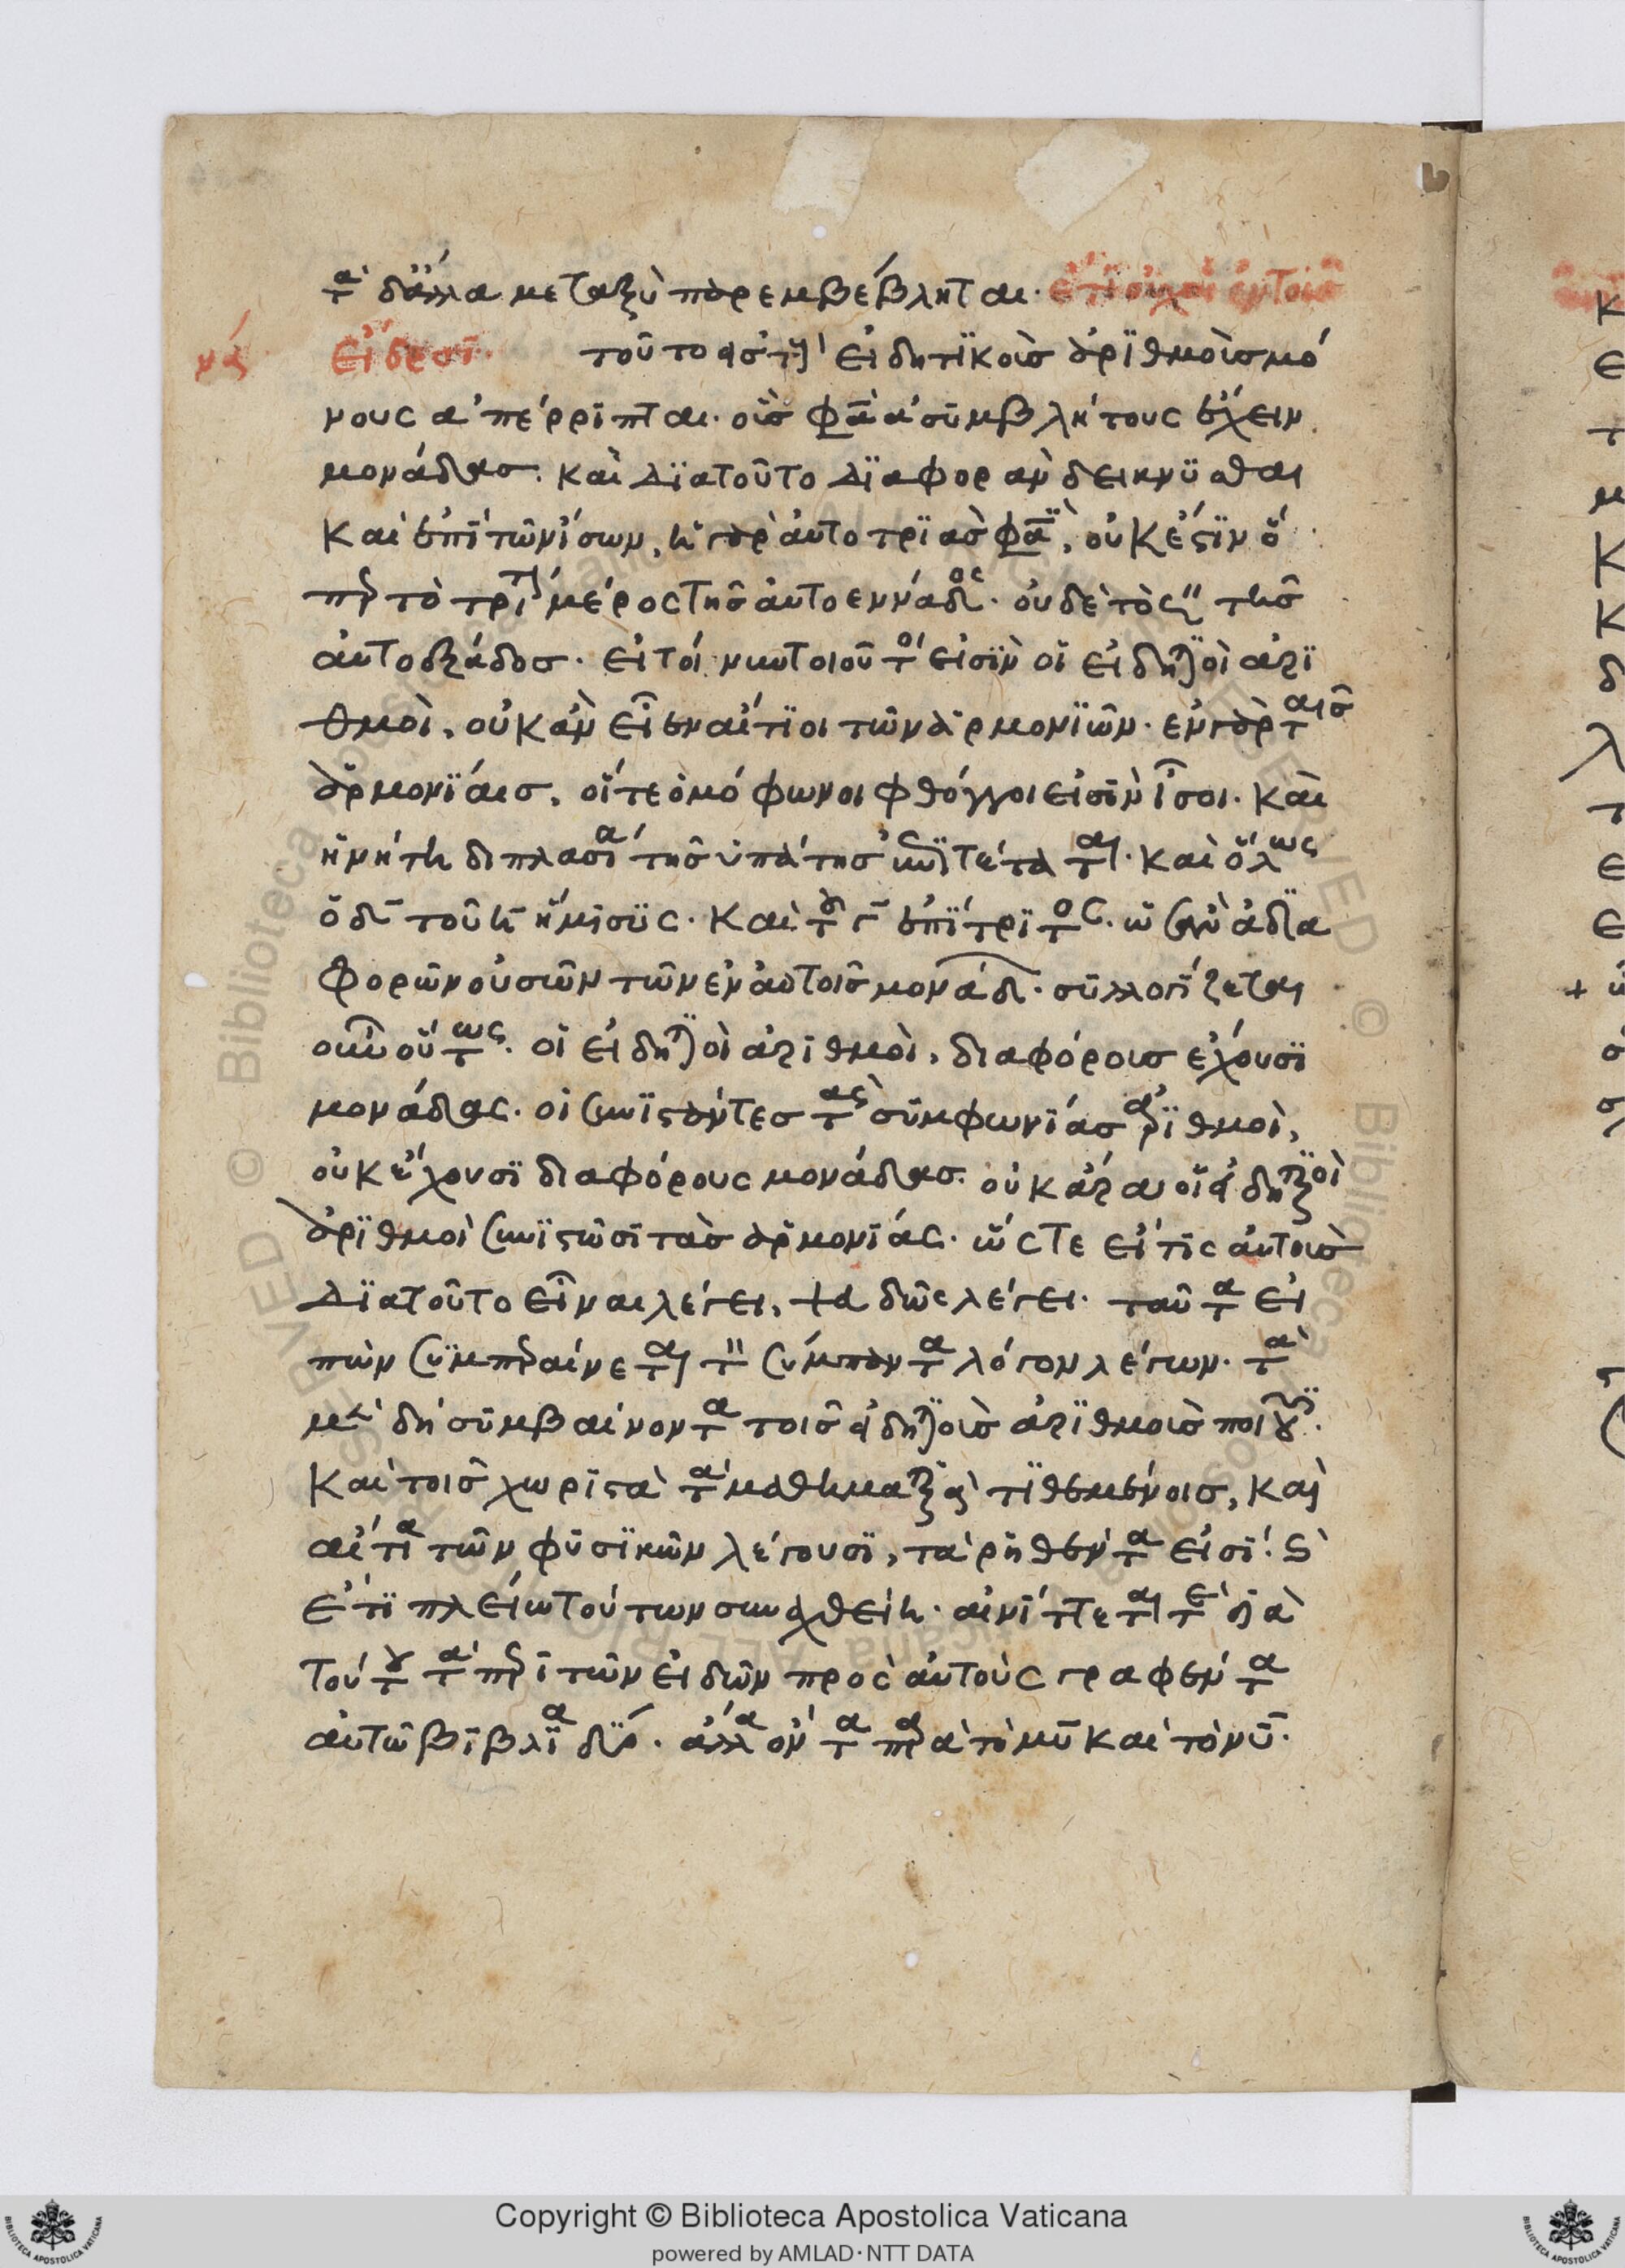 τὰ δ' ἄλλα μεταξὺ παρεμβέβληται. ἔτι οὐχ αἱ ἐν τοῖς
νά εἴδεσι. τοῦτο εἰς τοὺς εἰδητικοὺς ἀριθμοὺς μό
νους ἀπέρριπται. οἷς φασὶ ἀσυμβλήτους ἔχειν
μονάδας. καὶ διατοῦτο διαφορὰν δείκνυσθαι
καὶ ἐπὶ τῶν ἴσων, ἡ γὰρ αὐτοτριὰς φασὶ, οὐκ ἔστιν ὅ
περ τὸ τρίτον μέρος τῆς αὐτοεννάδος. οὐδὲ τὸ ς״ τῆς
αὐτοεξάδος. εἰ τοίνυν τοιοῦτοί εἰσιν οἱ εἰδητικοὶ ἀρι
θμοὶ, οὐκ ἂν εἶεν αἴτιοι τῶν ἁρμονιῶν. ἐν γὰρ ταῖς
ἁρμονίαις, οἵ τε ὁμόφωνοι φθόγγοι εἰσὶν ἴσοι. καὶ
ἡ νήτη διπλασία τῆς ὑπάτης συνίσταται. καὶ ὅλως
ὁ δ̄ τοῦ η̄ ἥμισυς. καὶ τοῦ γ̄ ἐπίτριτος. ὡς ἂν ἀδια
φορῶν οὐσῶν τῶν ἐν αὐτοῖς μονάδων. συλλογίζεται
οὖν οὕτως. οἱ εἰδητικοὶ ἀριθμοὶ, διαφόροις ἔχουσι
μονάδας. οἱ συνιστάντες τὰς συμφωνίας ἀριθμοὶ,
οὐκ ἔχουσι διαφόρους μονάδας. οὐκ ἄρα οἱ εἰδητικοὶ
ἀριθμοὶ συνιστῶσι τὰς ἁρμονίας. ὥστε εἴ τις αὐτοὺς
διατοῦτο εἶναι λέγει, ψευδῶς λέγει. ταῦτα εἰ
πὼν συμπεραίνεται τὸν σύμπαντα λόγον λέγων. τὰ
μὲν δὴ συμβαίνοντα τοῖς εἰδητικοῖς ἀριθμοῖς ποιοῦσι.
καὶ τοῖς χωριστὰ τὰ μαθηματικὰ τιθεμένοις, καὶ
αἴτια τῶν φυσικῶν λέγουσι, τὰ ῥηθέντα εἰσί. καὶ
ἔτι πλείω τούτων συναχθείη. αἰνίττεται τε διὰ
τούτου τὰ περὶ τῶν εἰδῶν πρὸς αὐτοὺς γραφέντα
αὐτῷ βιβλία δύο. ἄλλα ὄντα παρὰ τὸ μῦ καὶ τὸ νῦ.